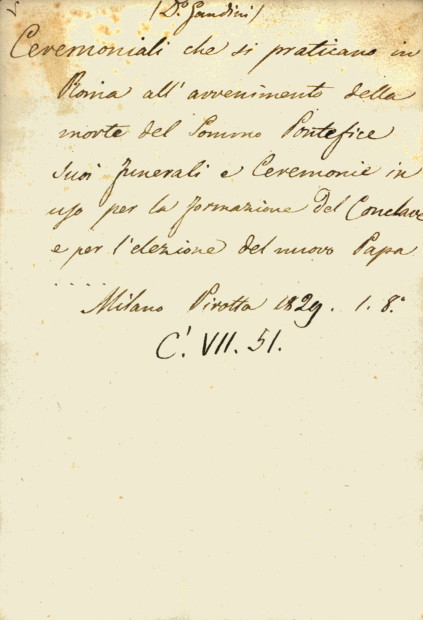 (D.r Gandini)
Ceremoniali che si praticano in
Roma all' avvenimento della
morte del Sommo Pontefice
suoi funerali e Ceremonie in
uso per la formazione del Conclave
e per l'elezione del nuovo Papa
....
Milano Pirotta 1829. 1. 8.°
C! VII. 51.